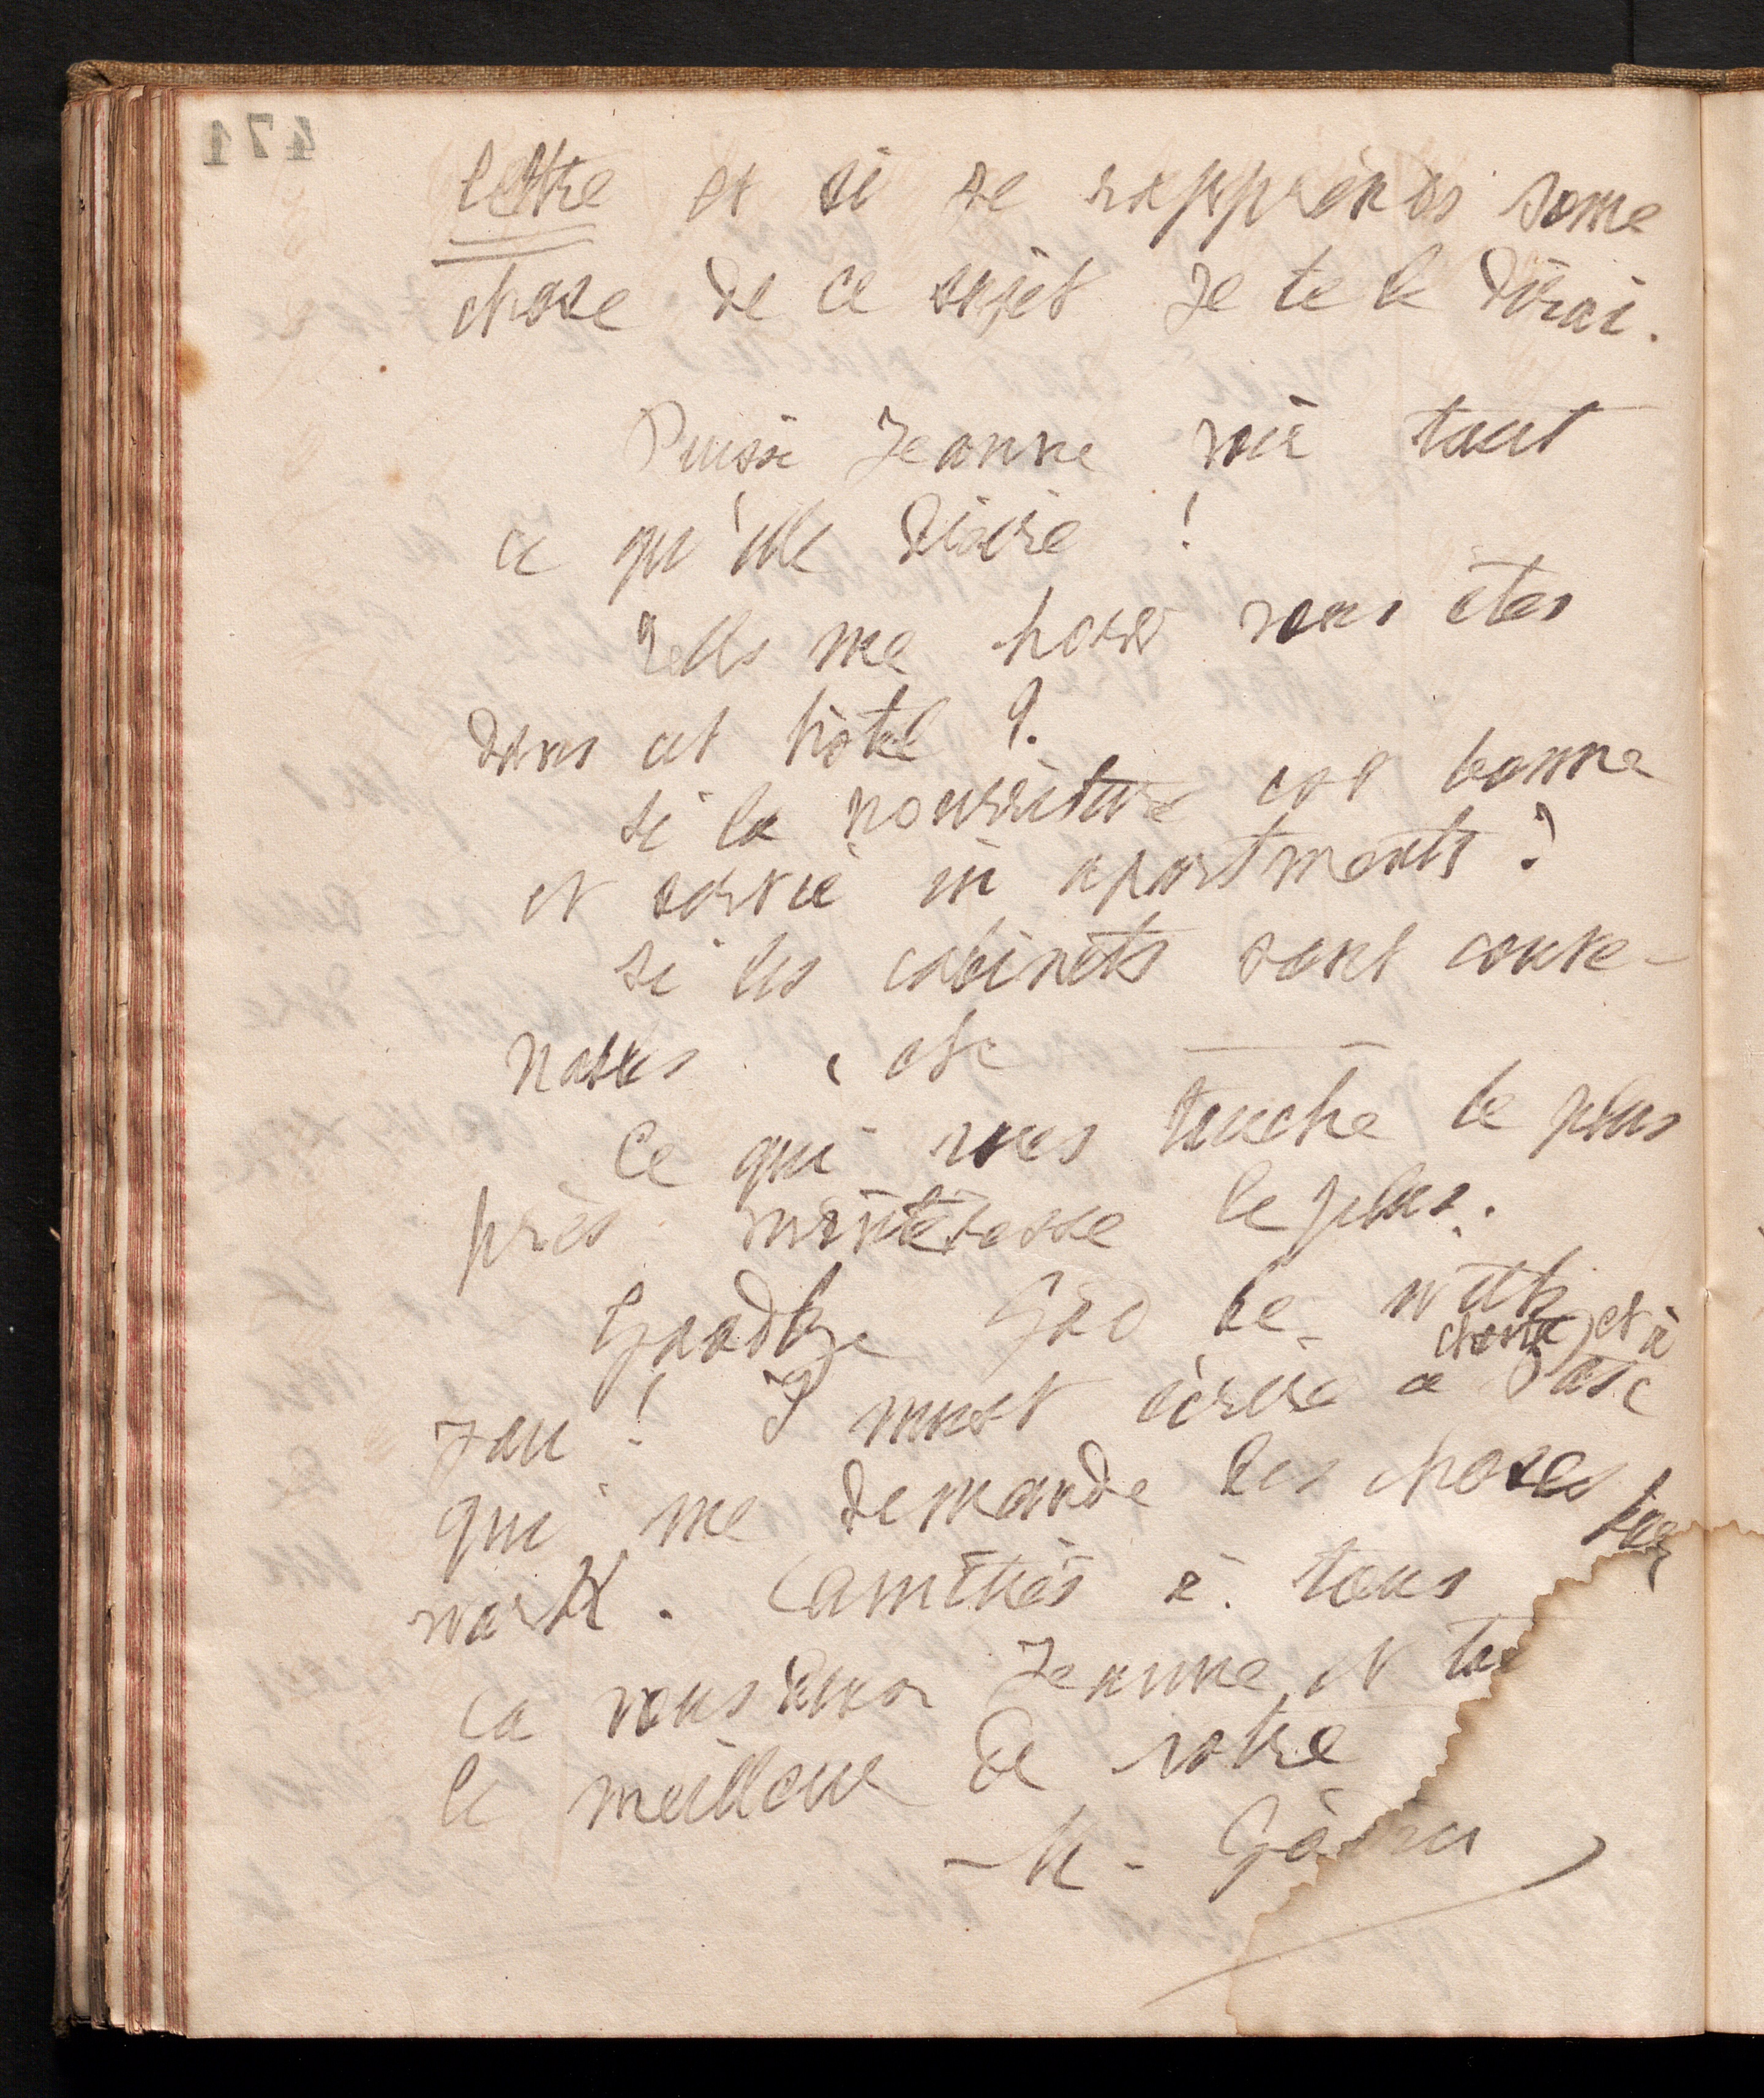 471
lettre et si je rapprends some
chose de ce sujet je te le dirai.
Puisse Jeanne voir tout
ce qu'elle désire !
Tells me how vous êtes
dans cet hôtel ?
si la nourriture est bonne
et servie in apartments ?
si les cabinets sont conve-
nables . , etc
Ce qui vous touche le plus
près m'intéresse le plus.
Goodbye God be with
et à
you ! I must écrire a
qui me demande les choses
work . amitiés à tous
ca vous deux Jeanne et toi
le meilleur de votre
M -